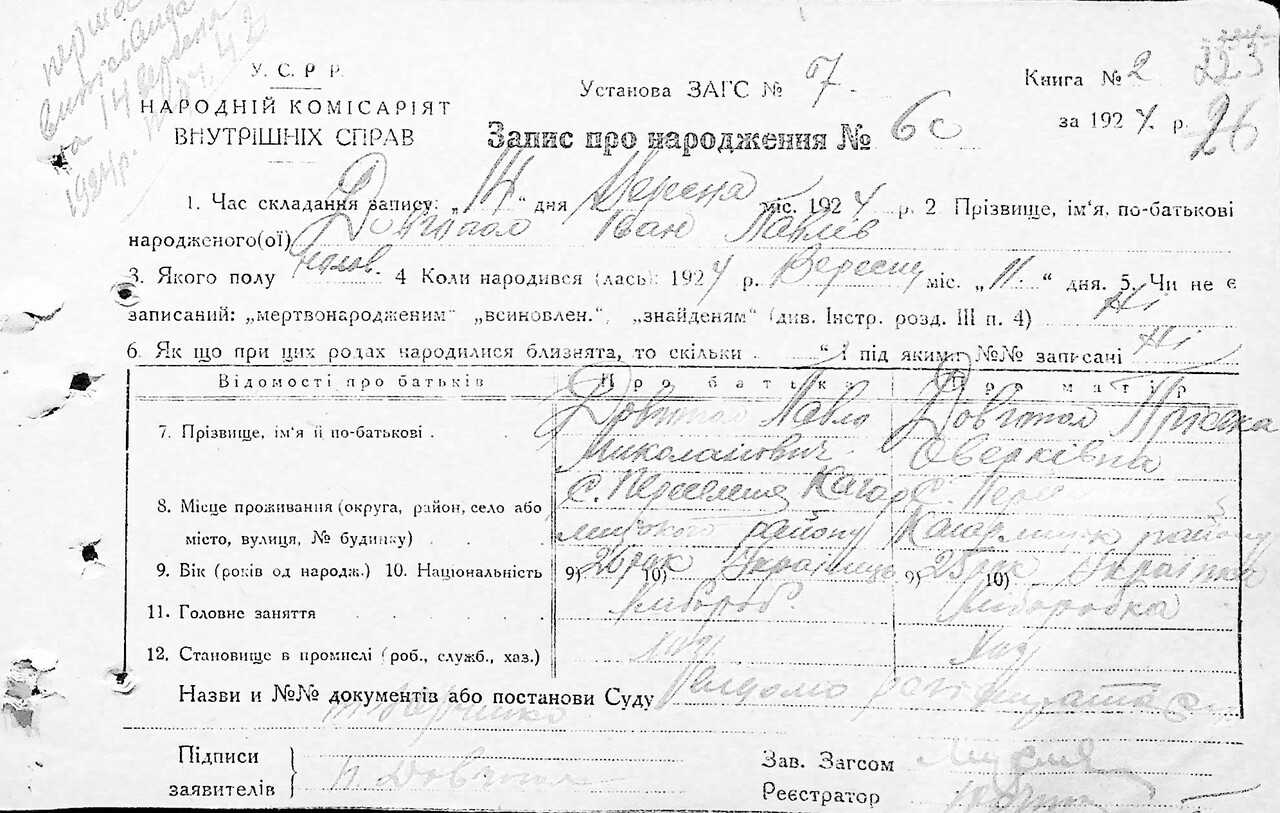 перша
на 14 вересня
1924 р.
У. С. Р. Р.
НАРОДНІЙ КОМІСАРІЯТ
ВНУТРІШНІХ СПРАВ
Установа ЗАГС № 7.
Книга № 2 223
за 1924 р. 26
Запис про народження № 60
1. Час складання запису: „14“ дня Вересня міс. 1924 р. 2 Прізвище, ім'я, по-батькові
народженого(ої) Довгопол Іван Павлів
3. Якого полу чолов. 4 Коли народився (лась): 1924 р. Вересня міс. „11“ дня. 5. Чи не є
записаний: „мертвонародженим“ „всиновлен.“, „знайденям“ (див. Інстр. розд. III п. 4) Ні
6. Як що при цих родах народилися близнята, то скільки “ і під якими №№ записані Ні
Відомості про батьків Про батька Про матір
7. Прізвище, ім'я й по-батькові . Довгопол Павло Миколайович Довгопол Приська Оверківна
8. Місце проживання (округа, район, село або місто, вулиця, № будинку) с. Переселення Кагарлицького району С. Кагарлицьк району
9. Вік (років од народж.) 10. Національність 9) 26 рок 10) Українець 9) 25 рок 10) Українка
11. Головне заняття Хлібороб. Хліборобка
12. Становище в промислі (роб., служб., хаз.) Хаз Хаз
Назви и №№ документів або постанови Суду
Підписи
заявителів
П. Довгопол
Зав. Загсом
Реєстратор